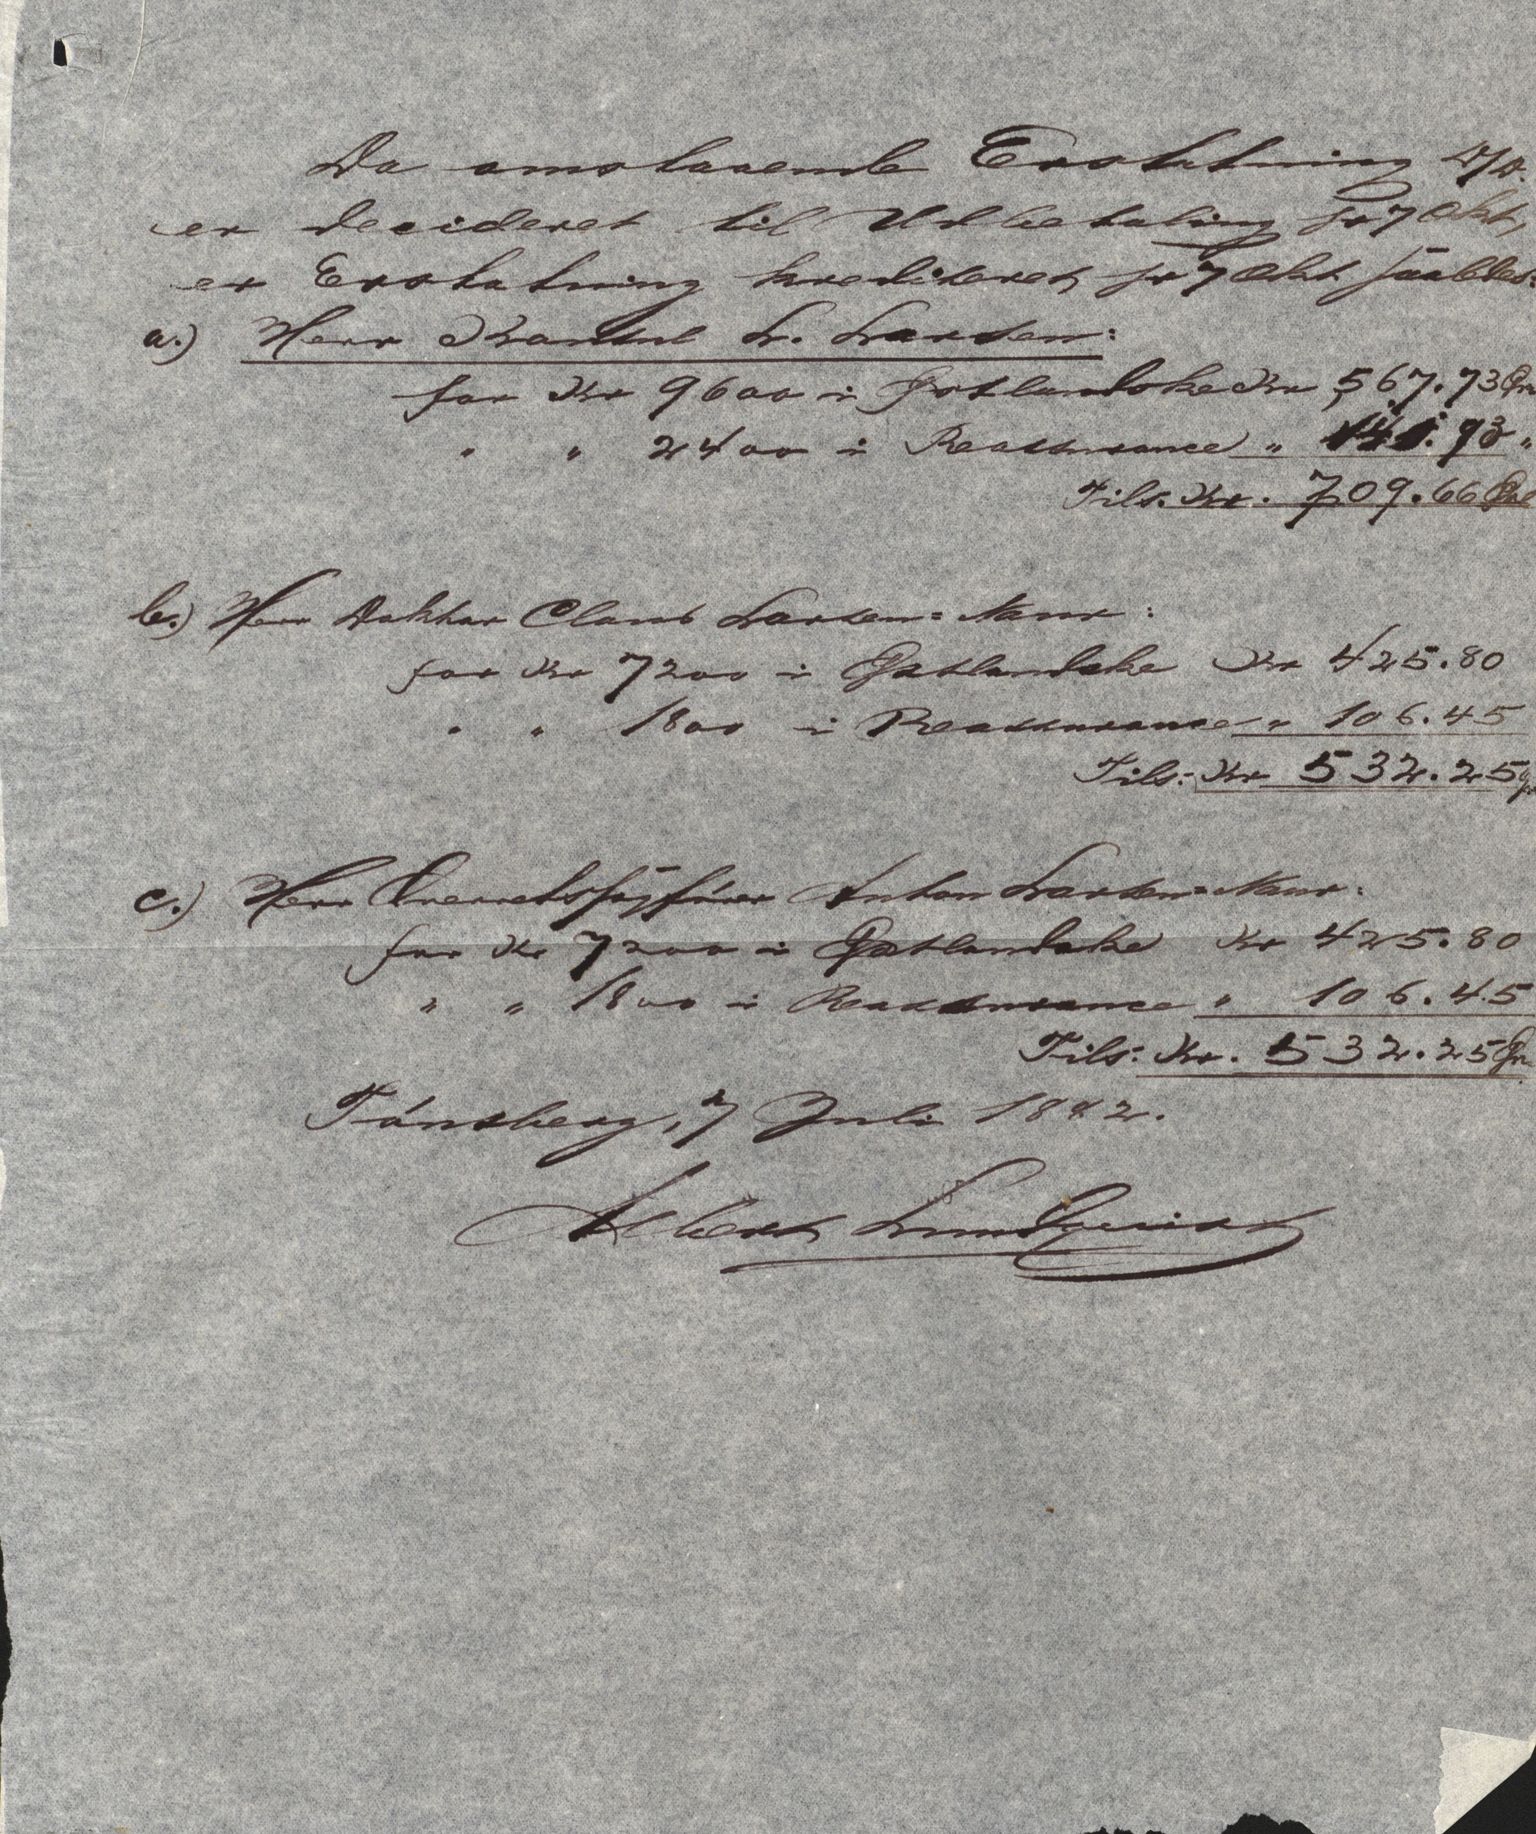 Da omskrevende Erstatning
er decideret til Udbetaling pr 7 Okt,
er Erstatning krediteret pr 7 Okt saaledes:
a.) Herr Konsul L. Larsen:
for Kr 9600 i Gotlandske Kr 567.73 Ør
" " 2400 i Reassurance " 141.93 "
Tils. Kr. 709.66
b.) Herr Doktor Claus Larsen=Naur:
for Kr 7200 i Gotlandske Kr 425.80
" " 1800 i Reassurance " 106.45
Tils: Kr 532.25
c.) Herr Overretssagfører Anton Larsen=Naur:
for Kr 7200 i Gotlandske Kr 425.80
" " 1800 i Reassurance " 106.45
Tils: Kr. 532.25 Ør.
Tønsberg, 7 Juli 1882.
Albert Lundqvist